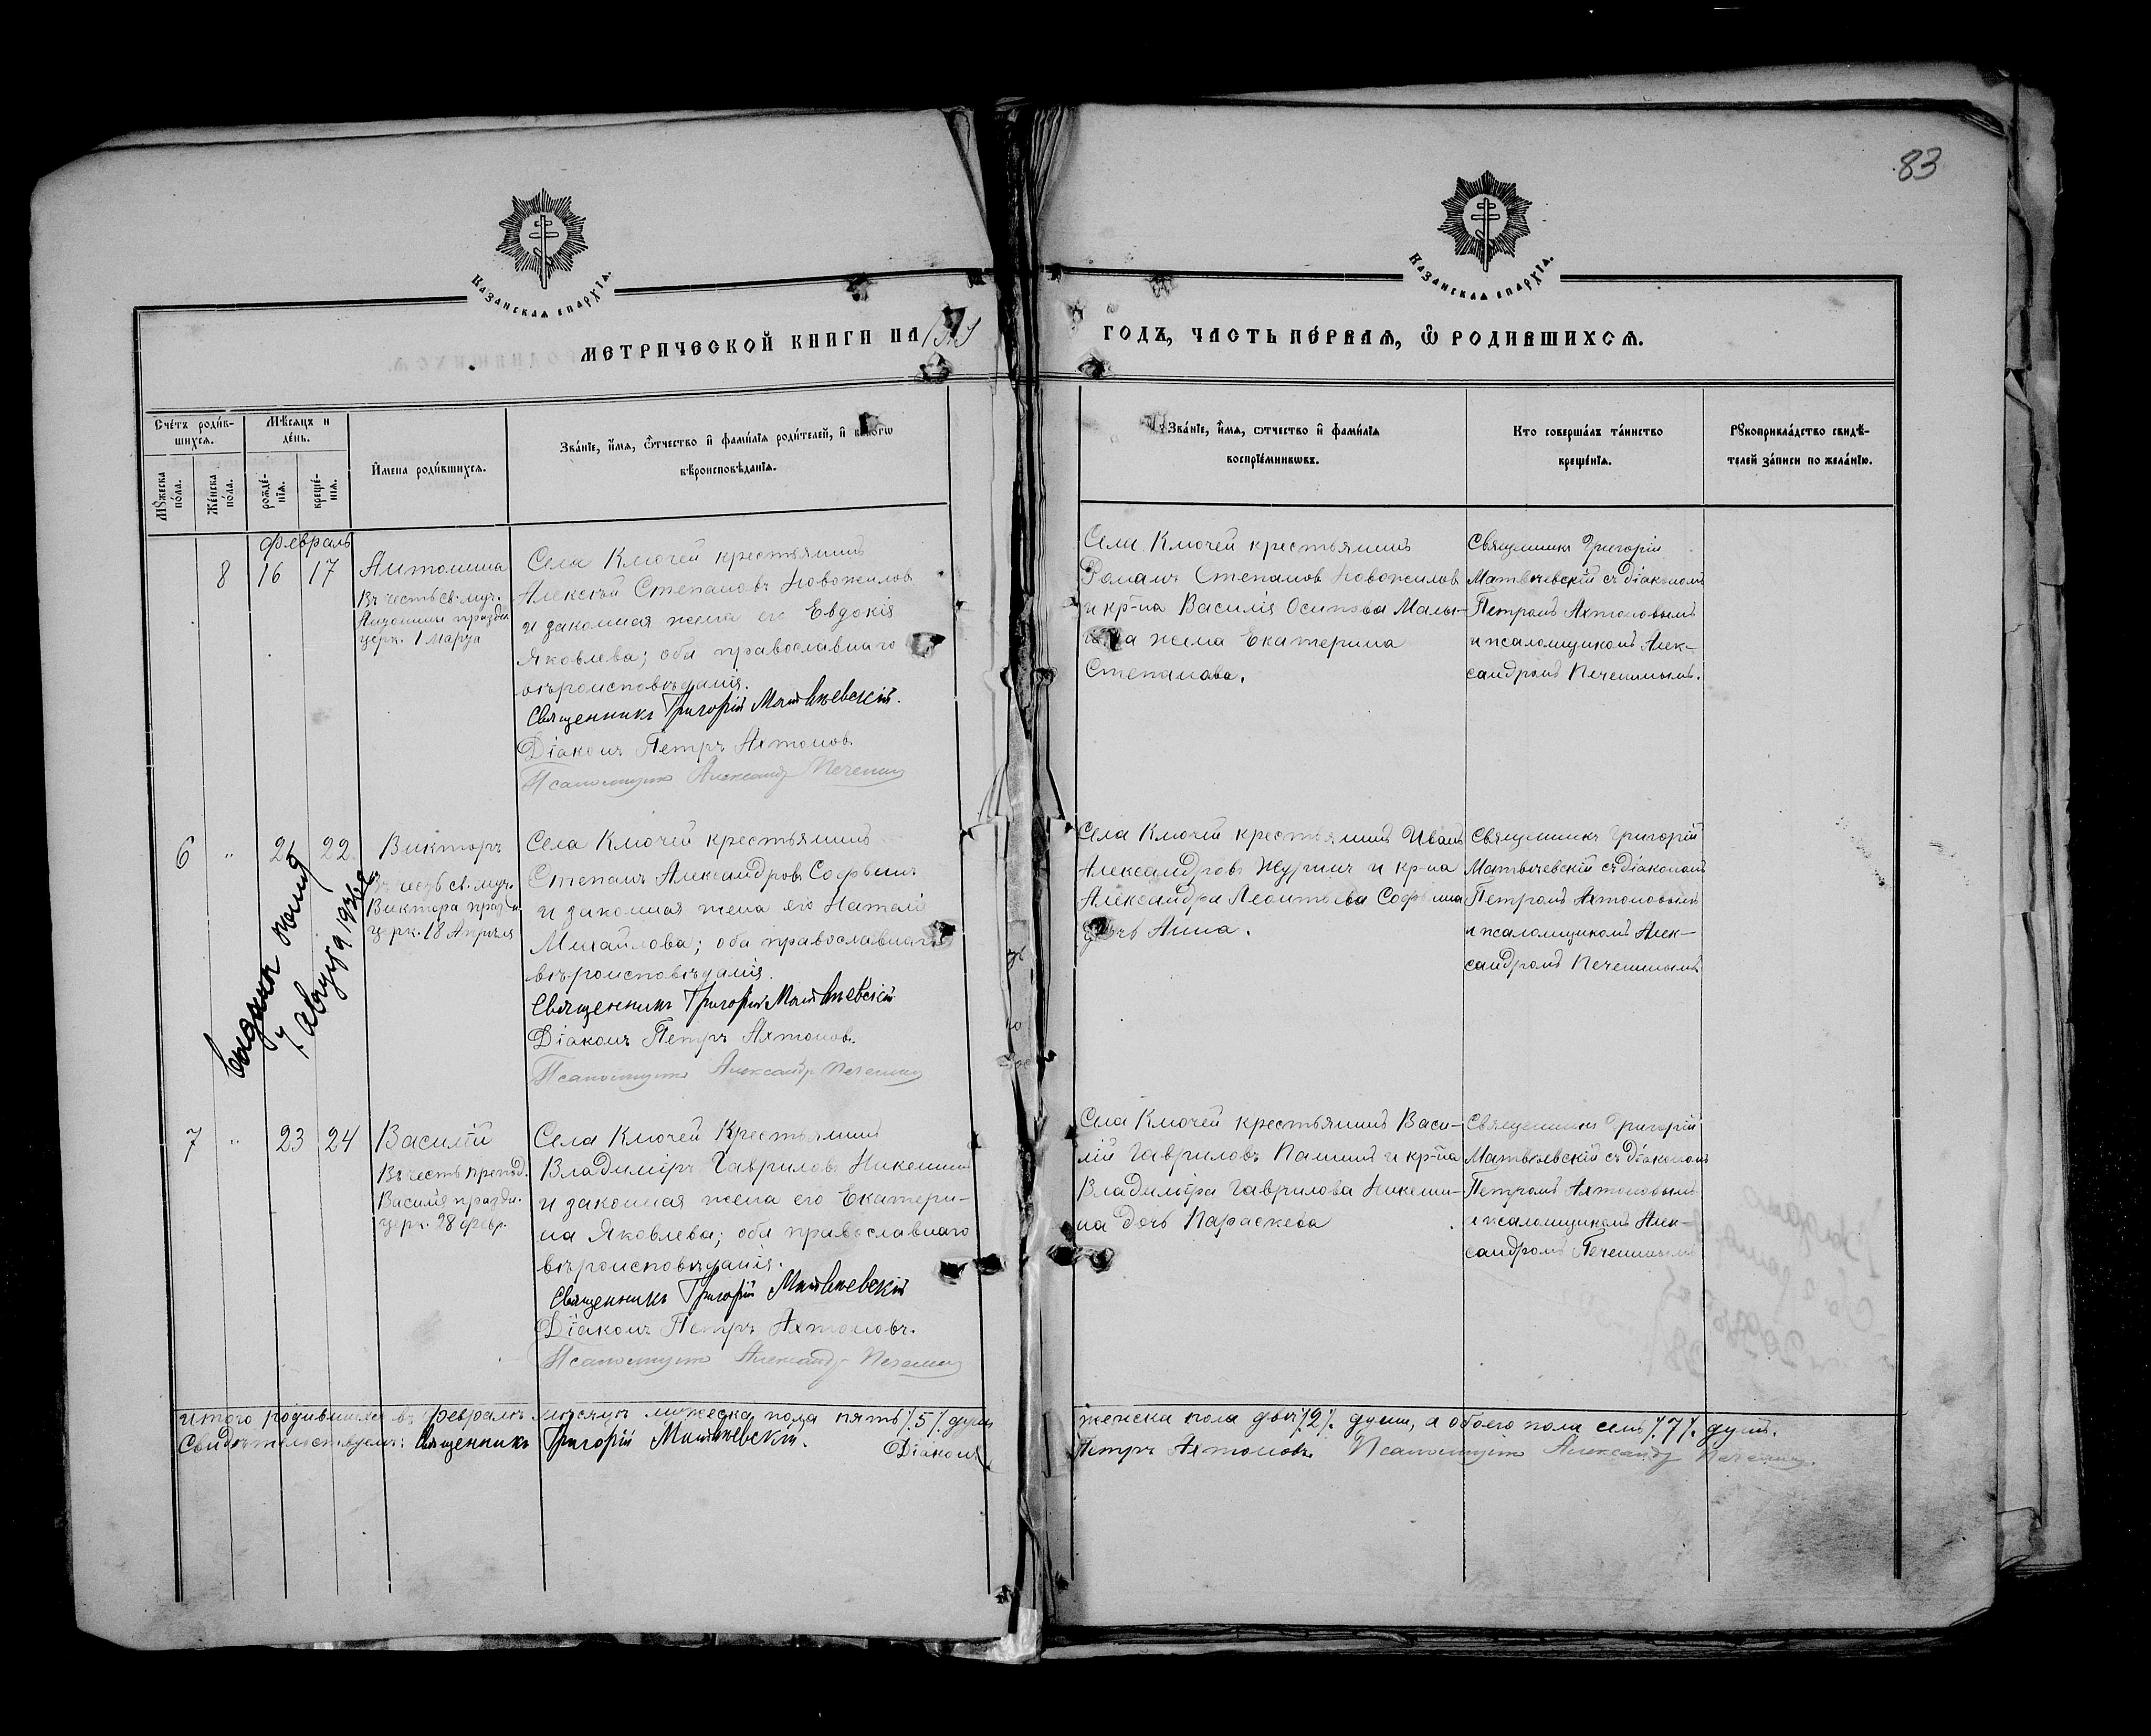 83
Казанская епархїя.
Казанская епархїя.
МЕТРИЧЕСКОЙ КНИГИ НА
ГОДЪ, ЧАСТЬ ПЕ́РВАЯ, Ѽ РОДИВШИХСЯ.
Сче́тъ роди́в-
шихся.
Мѣ́сяцъ и
де́нь.
Мꙋ́жеска
по́ла.
Же́нска
по́ла.
рожде́-
нїя.
креще́-
нїя.
И҆мена роди́вшихся.
Зва́нїе, и҆́мя, ѻ҆́тчество и҆ фами́лїя роди́телей, и҆
вѣроисповѣ́данїя.
Зва́нїе, и҆́мя, ѻ҆тчество и҆ фами́лїя
воспрїе́мникѡвъ.
Кто соверша́лъ та́инство
креще́нїя.
Рꙋкоприкла́дство свидѣ́-
телей за́писи по жела́нїю.
февраль
8 16 17
Антонина
Въ честь св. муч.
Антонины праздн.
церк. 1 марта
Села Ключей крестьянинъ
Алексѣй Степановъ Новожилов
и законная жена его Евдокія
Яковлева; оба православнаго
вѣроисповѣданія.
Священникъ Григорій Матвѣевскій.
Діаконъ Петръ Ахтоновъ.
Псаломщикъ Александръ Печенин
Села Ключей крестьянинъ
Романъ Степановъ Новожилов
и кр-на Василія Осипова Малы-
жена Екатерина
Степанова.
Священникъ Григорій
Матвѣевскій съ діакономъ
Петромъ Ахтоновымъ
и псаломщикомъ Алек-
сандромъ Печенинымъ.
6 „ 21 22
Викторъ
Въ честь св. муч.
Виктора праздн.
церк. 18 Апрѣля
Села Ключей крестьянинъ
Степанъ Александровъ Софьинъ
и законная жена его Наталія
Михайлова; оба православнаго
вѣроисповѣданія.
Священникъ Григорій Матвѣевскій
Діаконъ Петръ Ахтоновъ.
Псаломщикъ Александръ Печенин
Села Ключей крестьянинъ Иванъ
Александровъ Журинъ и кр-на
Александра Леонтьева Софьина
дочь Анна.
Священникъ Григорій
Матвѣевскій съ діакономъ
Петромъ Ахтоновымъ
и псаломщикомъ Алек-
сандромъ Печенинымъ.
Выдана копия
7 августа
7 „ 23 24
Василій
Въ честь препод.
Василія праздн.
церк. 28 февр.
Села Ключей Крестьянинъ
Владиміръ Гавриловъ Никешинъ
и законная жена его Екатери-
на Яковлева; оба православнаго
вѣроисповѣданія.
Священникъ Григорій Матвѣевскій
Діаконъ Петръ Ахтоновъ.
Псаломщикъ Александръ Печенин
Села Ключей крестьянинъ Васи-
лій Гавриловъ Панинъ и кр-на
Владиміра Гаврилова Никеши-
на дочь Параскева
Священникъ Григорій
Матвѣевскій съ діакономъ
Петромъ Ахтоновымъ
и псаломщикомъ Алек-
сандромъ Печенинымъ
Итого родившихся въ февралѣ мѣсяцѣ мужеска пола пять /.5/. душъ
женска пола двѣ /.2/. души, а обоего пола семь /.7/. душъ.
Свидѣтельствуемъ: Священникъ Григорій Матвѣевскій. Діаконъ
Петръ Ахтоновъ Псаломщикъ Александръ Печенин.